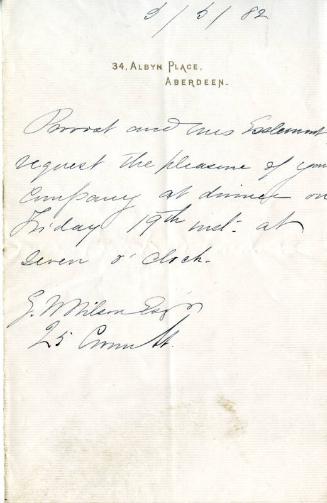 5/5/82
34, ALBYN PLACE.
ABERDEEN.
Provost and Mrs Esslemont
request the pleasure of your
Company at dinner on
Friday 19th inst. at
seven o'clock.
G. W Wilson Esqr
25 Crown St.